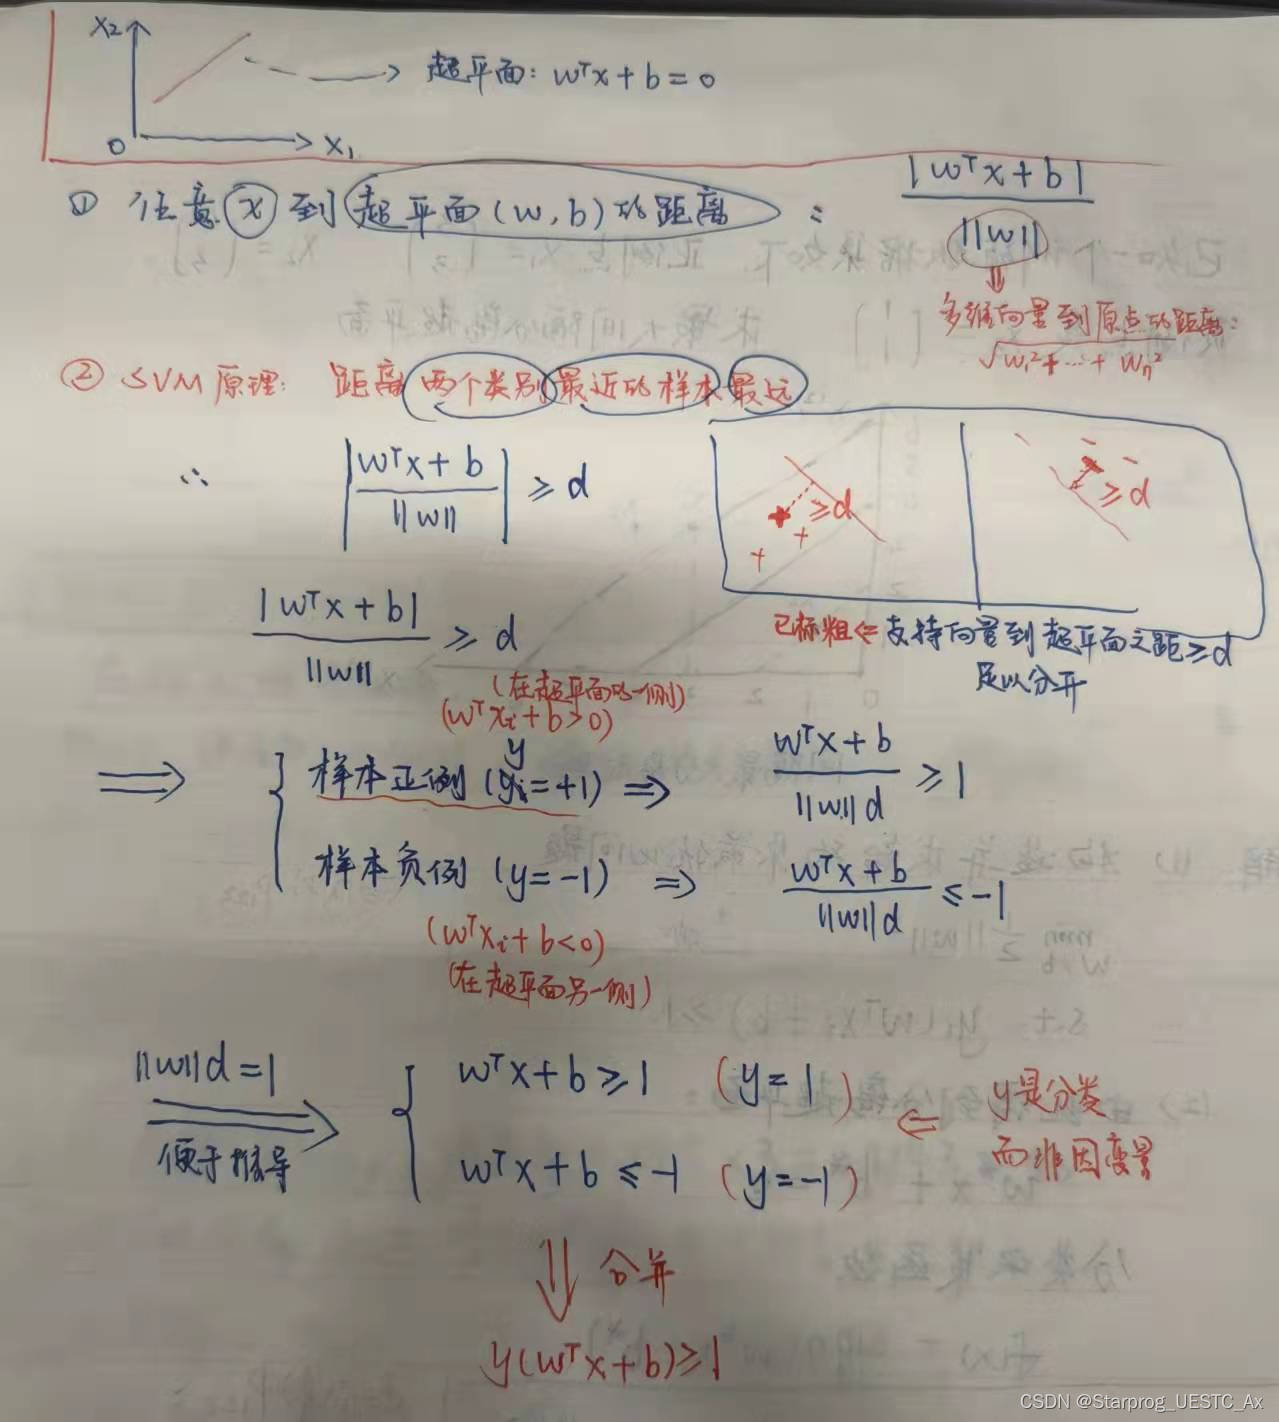 x₂
超平面: wᵀx + b = 0
0
x₁
① 任意 x 到 超平面 (w, b) 的距离 :
|wᵀx + b|
||w||
多维向量到原点的距离:
√w₁² + ... + wₙ²
② SVM 原理: 距离 两个类别 最近的样本 最远
∴ |wᵀx + b / ||w||| ≥ d
≥ d
≥ d
+ +
- -
已标粗 ⇐ 支持向量到超平面之距 ≥ d
足以分开
|wᵀx + b| / ||w|| ≥ d
(在超平面的一侧)
(wᵀxᵢ + b > 0)
y
⟹ { 样本正例 (yᵢ = +1) ⇒ wᵀx + b / ||w|| d ≥ 1
样本负例 (y = -1) ⇒ wᵀx + b / ||w|| d ≤ -1
(wᵀxᵢ + b < 0)
(在超平面另一侧)
||w|| d = 1
便于推导
wᵀx + b ≥ 1 (y = 1)
wᵀx + b ≤ -1 (y = -1)
⇐ y是分类
而非因变量
⇓ 合并
y(wᵀx + b) ≥ 1
CSDN @Starprog_UESTC_Ax